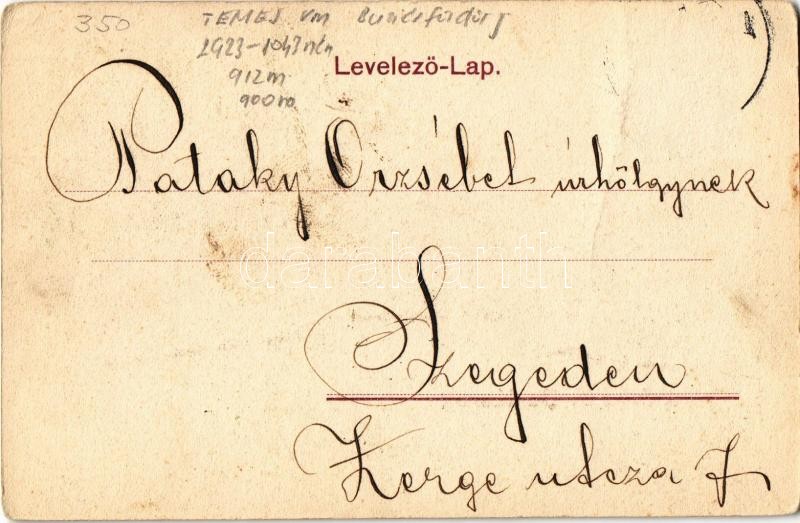 350
TEMES vm Buziásfürdő
1923-1043
912m
900ro
Levelező-Lap.
Pataky Örzsébet úrhölgynek
darabanth
Szegeden
Zerge utcza 7